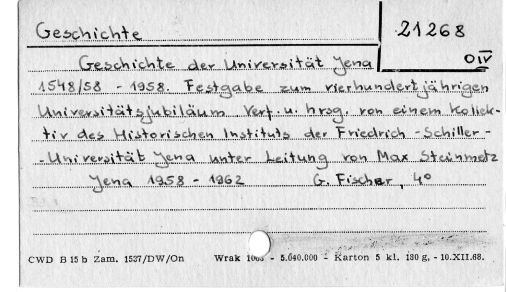 Geschichte
21268
O IV
Geschichte der Universität Jena
1548/58 - 1958. Festgabe zum vierhundertjährigen
Universitätsjubiläum Verf. u. hrsg. von einem Kollek-
tiv des Historischen Instituts der Friedrich - Schiller -
- Universität Jena unter Leitung von Max Steinmetz
Jena 1958 - 1962 G. Fischer, 4°
CWD B 15 b Zam. 1527/DW/On Wrak - 5.640.000 - Karton 5 kl. 180 g. - 10.XII.68.